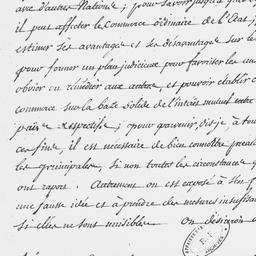 avec d'autres Nations; pour savoir jusqu'à quel p
il peut affecter le Commerce ordinaire de l'Etat,
estimer ses avantages et ses désavantages sur le
pour former un plan judicieux pour favoriser les un
obvier ou remédier aux autres, et pouvoir etablir c
commerce sur la base solide de l'intérêt mutuel entre
païs respectifs; pour parvenir, dis-je à tou
ces fins, il est necessaire de bien connoître preal
les principales, si non toutes les circonstances q
ont raport. Autrement on est exposé à s'en f
une fausse idée et à prendre des mesures insuffisan
si elles ne sont nuisibles. On désireroit